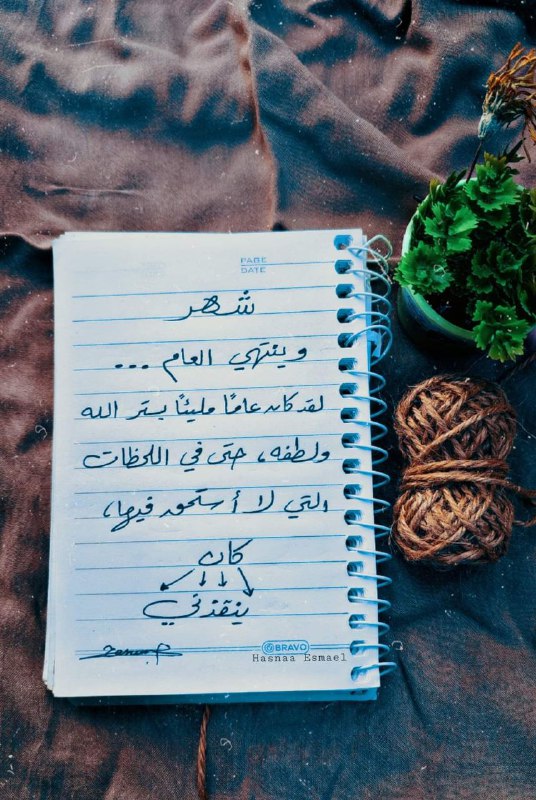 PAGE
DATE
شهر
وينتهي العام ...
لقد كان عامًا مليئًا بستر الله
ولطفه، حتى في اللحظات
التي لا أستحق فيها،
كان
ينقذني
BRAVO
Hasnaa Esmael